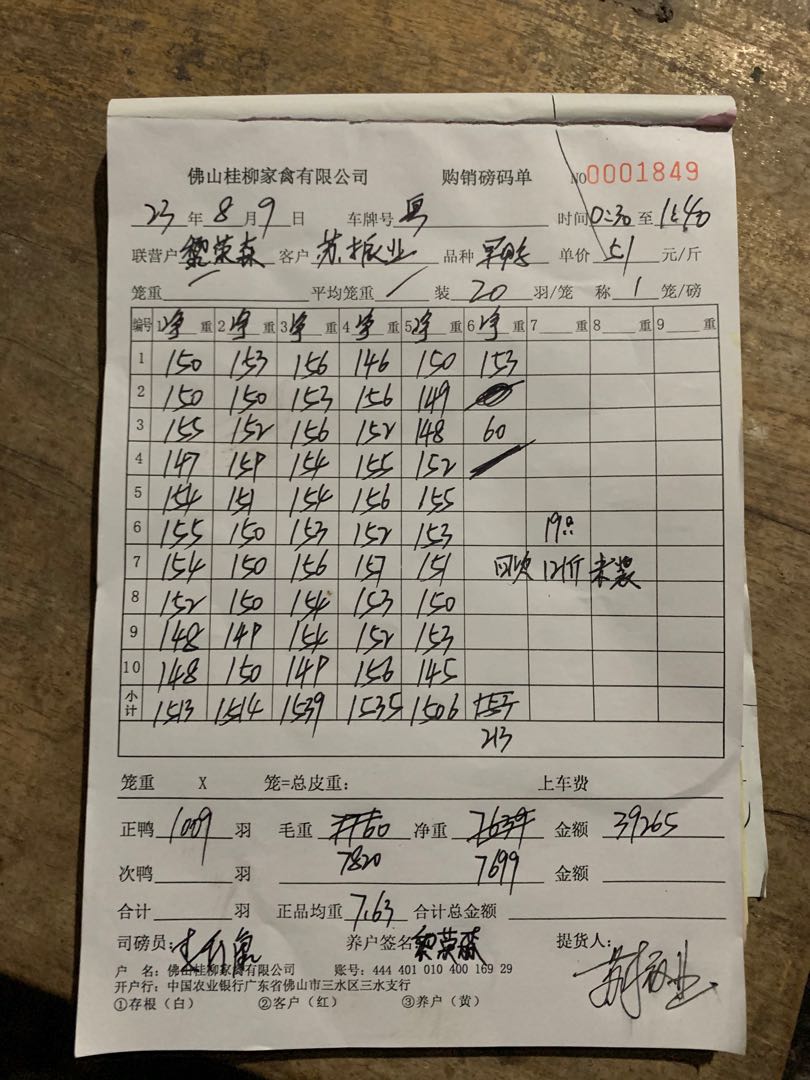 佛山桂柳家禽有限公司 购销磅码单 NO0001849
23年8月9日 车牌号粤 时间0:30至1:40
联营户黎荣森 客户苏振业 品种 单价5.1元/斤
笼重 平均笼重 装20羽/笼 称1笼/磅
编号 1净重 2净重 3净重 4净重 5净重 6净重 7重 8重 9重
1 150 153 156 146 150 153
2 150 150 153 156 149
3 155 152 156 152 148 60
4 147 159 154 155 152
5 154 151 154 156 155
6 155 150 153 152 153 19只
7 154 150 156 157 151 12斤 未装
8 152 150 154 153 150
9 148 149 154 152 153
10 148 150 149 156 145
小计 1513 1514 1539 1535 1506 153
213
笼重 X 笼=总皮重: 上车费
正鸭1009羽 毛重7760 净重7639 金额39265
次鸭 羽 7820 7699 金额
合计 羽 正品均重7.63 合计总金额
司磅员: 养户签名黎荣森 提货人:苏振业
户 名:佛山桂柳家禽有限公司 账号:444 401 010 400 169 29
开户行:中国农业银行广东省佛山市三水区三水支行
①存根(白) ②客户(红) ③养户(黄)